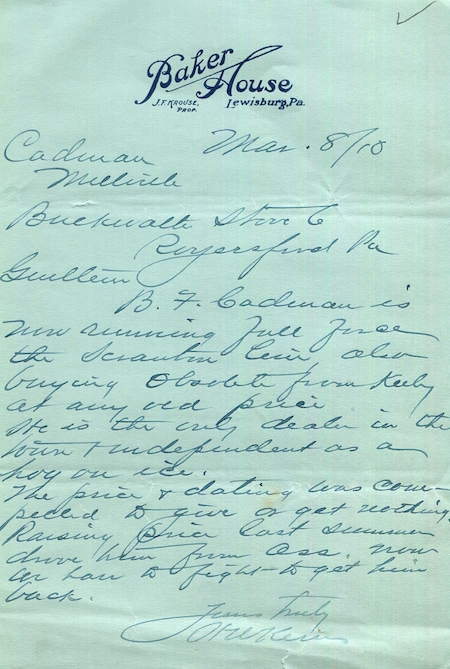 Baker House
J.F. Krouse, Prop. Lewisburg, Pa.
Mar. 8/10
Cadman
Buckwalter Stove Co
Royersford Pa
Gentlemen
B. F. Cadman is
now running full force
the Scranton line, also
buying Obsolete from Keeley
at any old price
He is the only dealer in the
town + independent as a
hog on ice.
The price & dating was com-
pelled to give or get nothing.
Raising price last summer
drove him from us. now
we have to fight to get him
back.
Yours truly